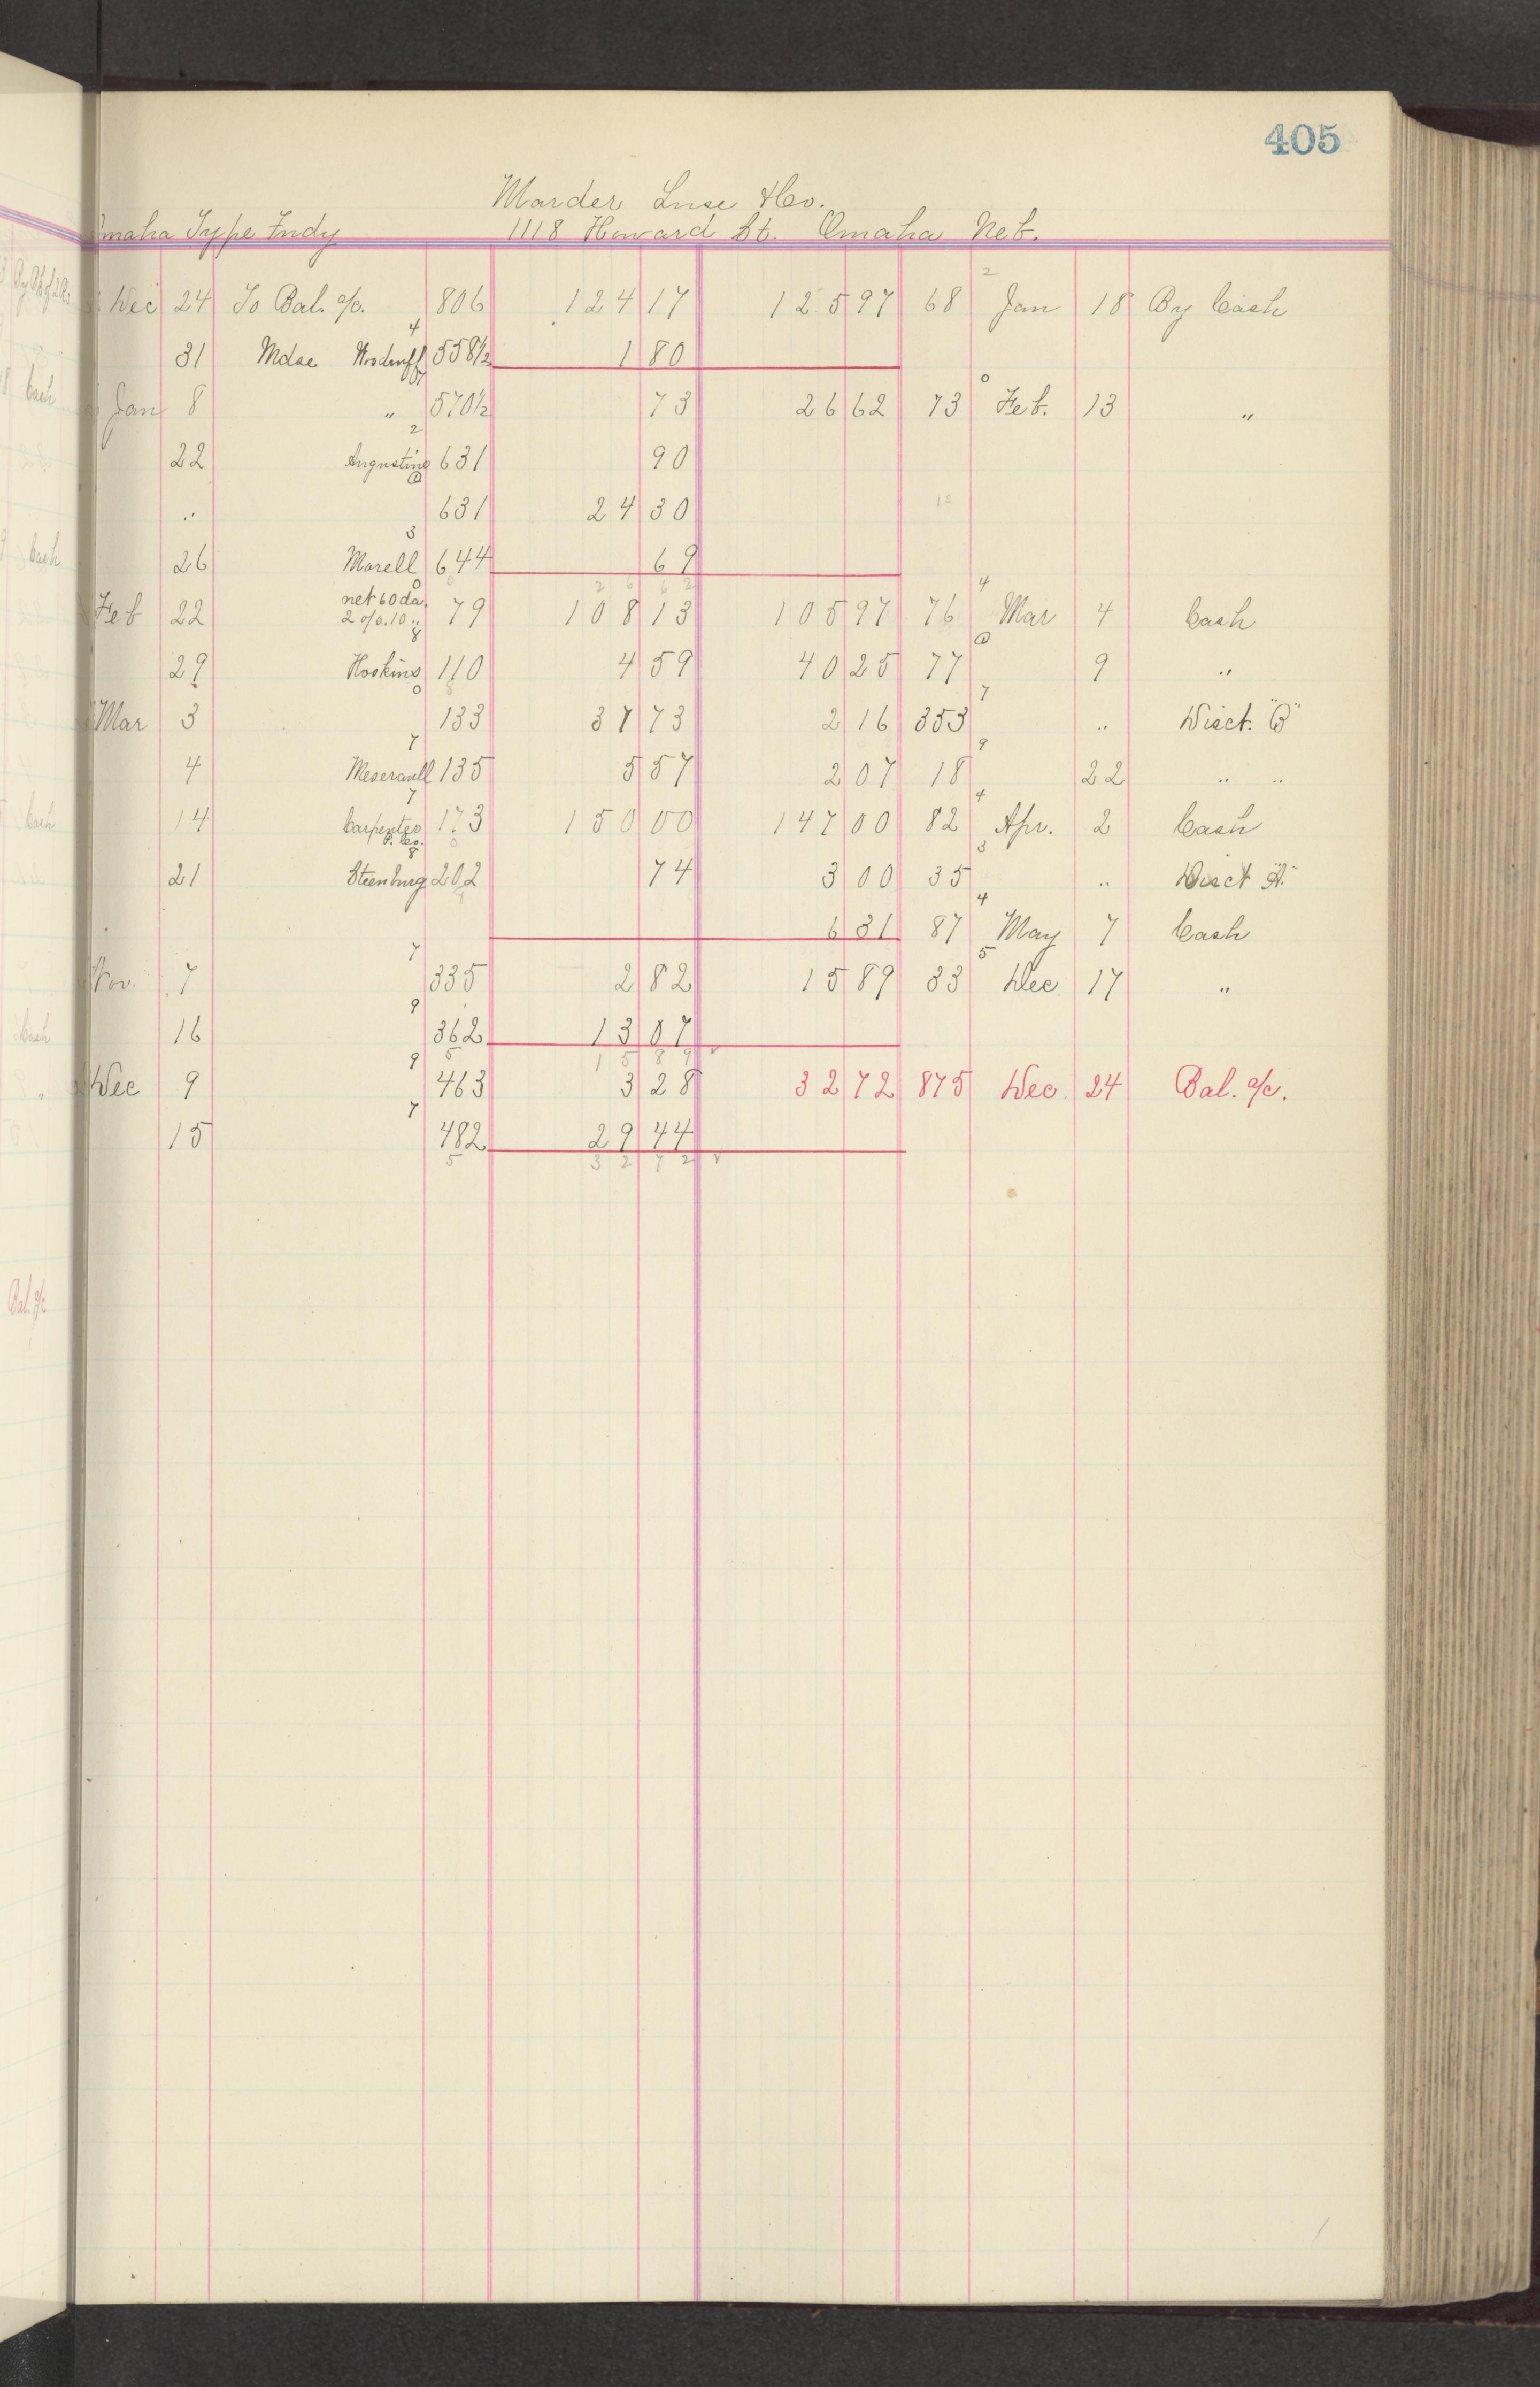 405
Marder Luse & Co.
Omaha Type Fndy 1118 Howard St. Omaha Neb.
Dec 24 To Bal. a/c. 806 124 17 125 97 68 Jan 18 By Cash
31 Mdse Woodruff 558½ 1 80
Jan 8 " 570½ 73 26 62 73 Feb. 13 "
22 Augustine 631 90
" 631 24 30
26 Morell 644 69
Feb 22 net 60 da. 2 0/0. 10 " 79 108 13 105 97 76 Mar 4 Cash
29 Hoskins 110 4 59 40 25 77 9 "
Mar 3 133 37 73 2 16 353 " Disct. "B"
4 135 5 57 2 07 18 22 " "
14 Carpenter P. Co. 173 150 00 147 00 82 Apr. 2 Cash
21 Steenburg 202 74 3 00 35 " Disct "A"
6 31 87 May 7 Cash
Nov. 7 335 2 82 15 89 33 Dec 17 "
16 362 13 07
15 89
Dec 9 463 3 28 32 72 875 Dec. 24 Bal. a/c.
15 482 29 44
32 72